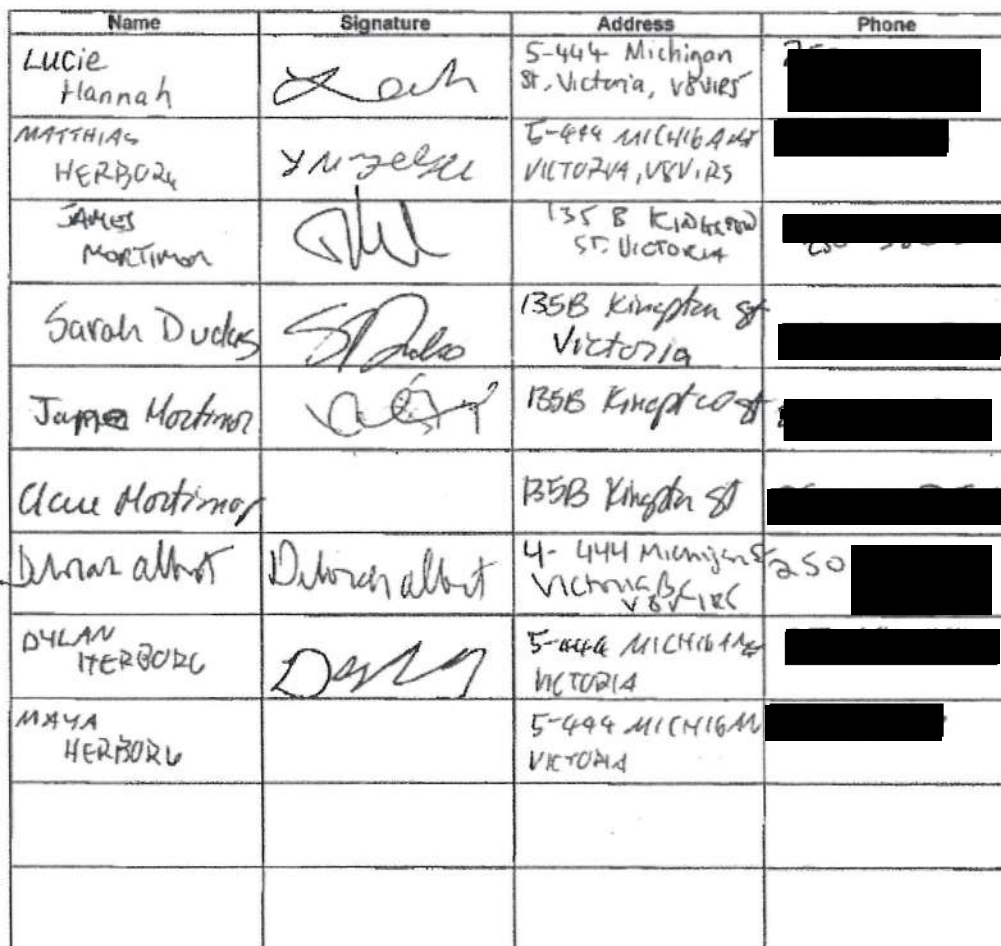 Name Signature Address Phone
Lucie
Hannah
5-444 Michigan
St, Victoria, V8V1R5
MATTHIAS
HERBORG
5-444 MICHIGAN ST
VICTORIA, V8V1R5
JAMES
MORTIMOR
135 B KINGSTON
ST. VICTORIA
Sarah Duckas
135B Kingston St
Victoria
Mortimor
135B Kingston St
Mortimor
135B Kingston St
Deborah albert
Deborah albert
4- 444 Michigan St
Victoria BC
V8V 1R5
250
DYLAN
HERBORG
5-444 MICHIGAN ST
VICTORIA
MAYA
HERBORG
5-444 MICHIGAN
VICTORIA